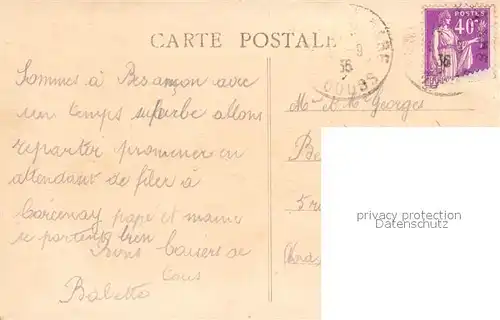 CARTE POSTALE
POSTES
40c
36
DOUBS
Sommes à Besançon avec
un temps superbe allons
repartir promener en
attendant de filer à
Corcenay papa et mama
se portent bien
Bons baisers de
tous
Babette
M. et Mme Georges
Be
5 r
privacy protection
Datenschutz